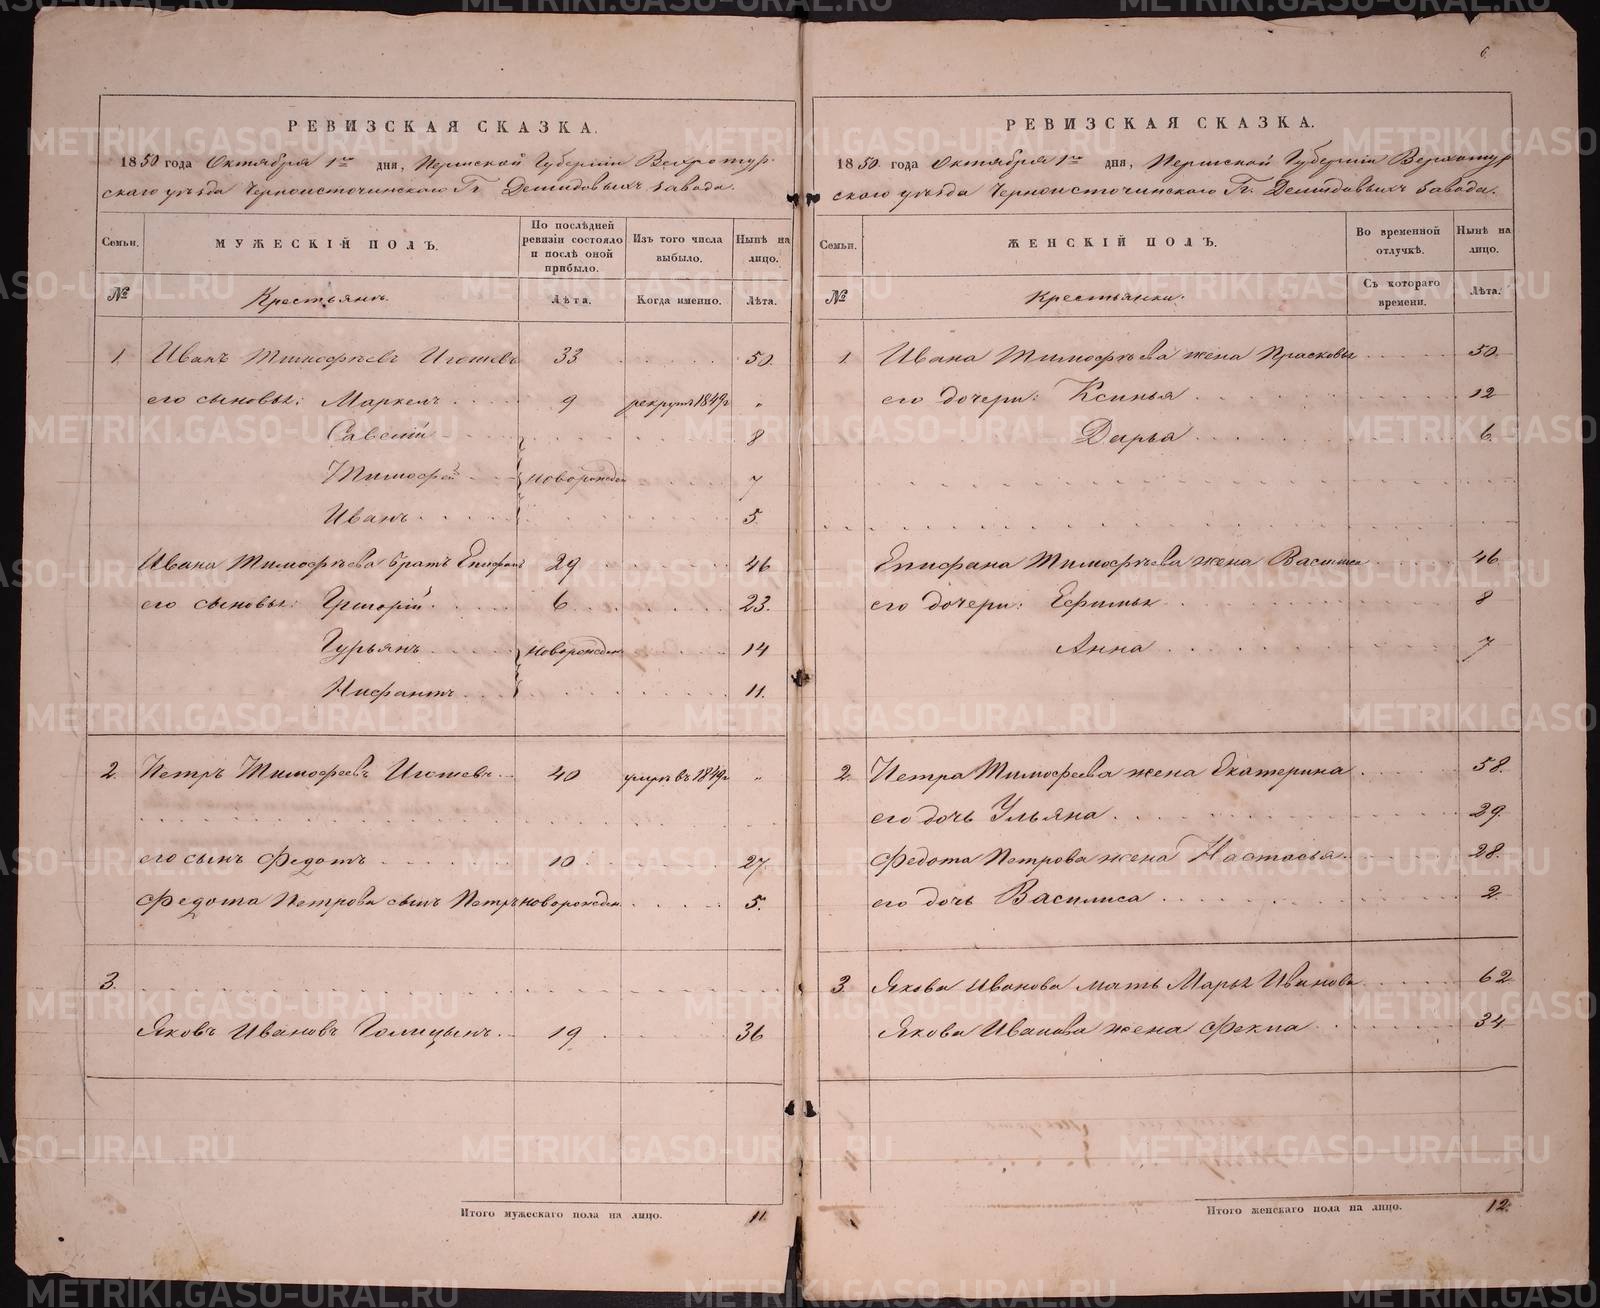 РЕВИЗСКАЯ СКАЗКА.
1850 года Октября 1го дня, Пермской Губернии Верхотур
скаго уѣзда Черноисточинскаго Гг. Демидовыхъ завода.
Семьи.
МУЖЕСКІЙ ПОЛЪ.
По послѣдней ревизіи состояло и послѣ оной прибыло.
Изъ того числа выбыло.
Нынѣ на лицо.
№
Крестьянъ.
Лѣта.
Когда именно.
Лѣта.
1. Иванъ Тимофѣевъ Игошевъ 33 50.
его сыновья: Маркелъ 9 рекрутъ 1849г "
Савелій 8
Тимофей новорожден 7
Иванъ 5.
Ивана Тимофѣева братъ Епифанъ 29 46
его сыновья: Григорій 6 23.
Гурьянъ новорожден 14
Нифантъ 11.
2. Петръ Тимофеевъ Игошевъ 40 умръ въ 1849г "
его сынъ Федотъ 10 27.
Федота Петрова сынъ Петръ новорожден 5.
3.
Яковъ Ивановъ Голицынъ 19 36
Итого мужескаго пола на лицо. 11.
6
РЕВИЗСКАЯ СКАЗКА.
1850. года Октября 1го дня, Пермской Губерніи Верхотур
скаго уѣзда Черноисточинскаго Гг. Демидовыхъ завода.
Семьи.
ЖЕНСКІЙ ПОЛЪ.
Во временной отлучкѣ.
Нынѣ на лицо.
№
Крестьянки.
Съ котораго времени.
Лѣта.
1. Ивана Тимофѣева жена Прасковья 50.
его дочери: Ксинья 12
Дарья 6.
Епифана Тимофѣева жена Василиса 46
его дочери: Ефимья 8
Анна 7
2. Петра Тимофеева жена Екатерина 58.
его дочь Ульяна 29.
Федота Петрова жена Настасья 28.
его дочь Василиса 2
3. Якова Иванова мать Марья Иванова 62
Якова Иванова жена Фекла 34
Итого женскаго пола на лицо. 12.
METRIKI.GASO-URAL.RU